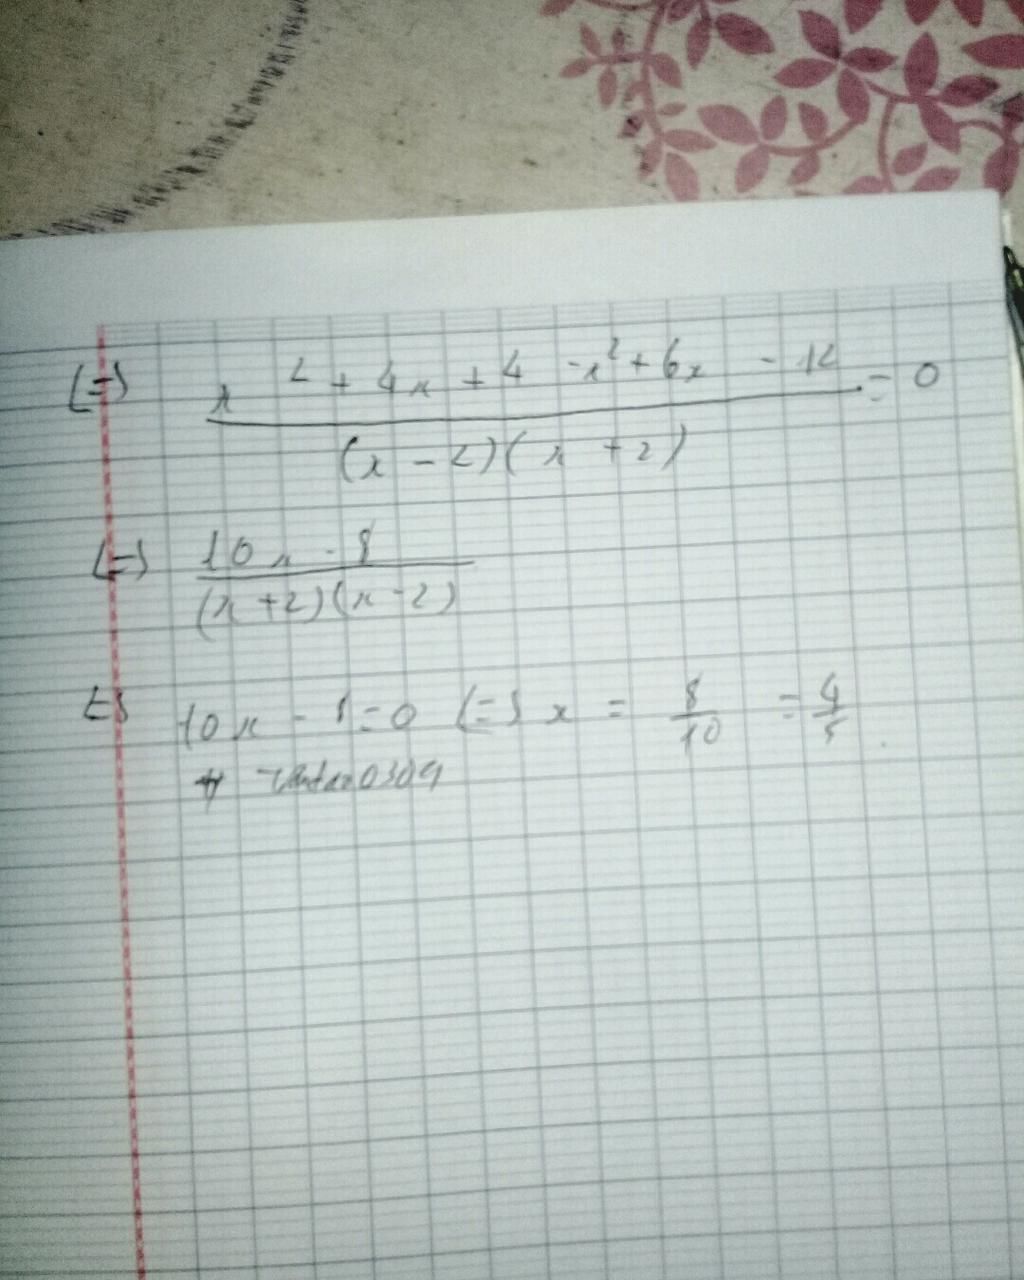 (=) x² + 4x + 4 - x² + 6x - 12 / (x - 2)(x + 2) = 0
(=) 10x - 8 / (x + 2)(x - 2)
(=) 10x - 8 = 0 (=) x = 8/10 = 4/5